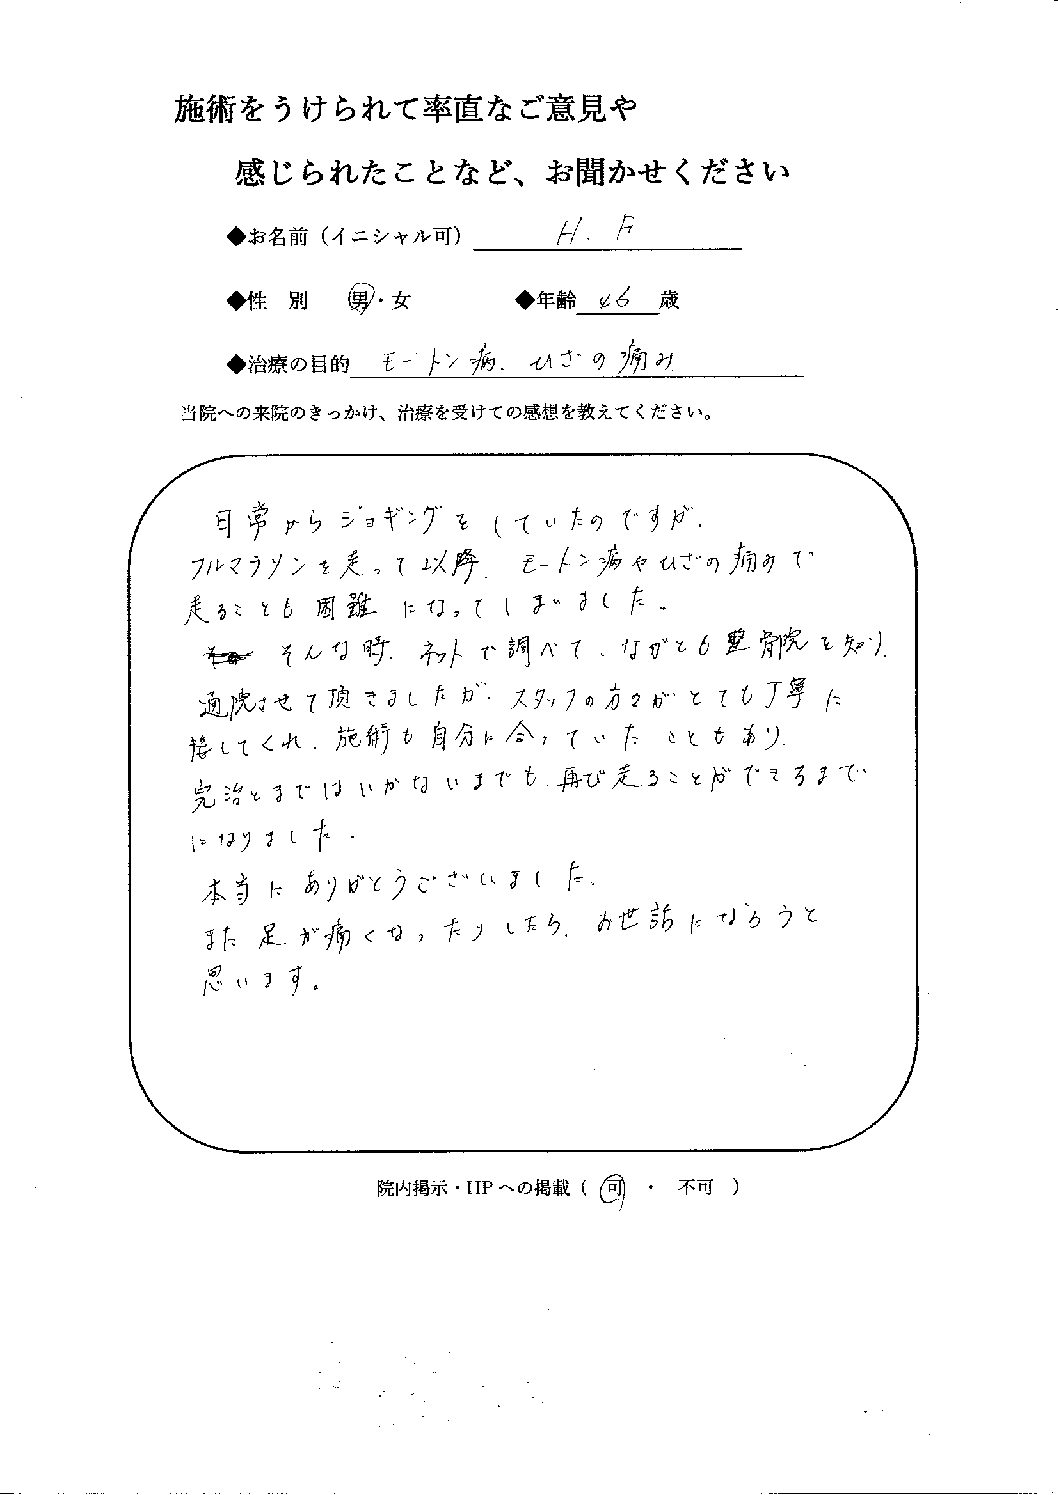 施術をうけられて率直なご意見や
感じられたことなど、お聞かせください
◆お名前（イニシャル可） H. F
◆性 別 男・女 ◆年齢 46 歳
◆治療の目的 モートン病、ひざの痛み
当院への来院のきっかけ、治療を受けての感想を教えてください。
日常からジョギングをしていたのですが、
フルマラソンを走って以降、モートン病やひざの痛みで
走ることも困難になってしまいました。
そんな時、ネットで調べて、ながとも整骨院を知り、
通院させて頂きましたが、スタッフの方々がとても丁寧に
接してくれ、施術も自分に合っていたこともあり、
完治とまではいかないまでも、再び走ることができるまで
になりました。
本当にありがとうございました。
また足が痛くなったりしたら、お世話になろうと
思います。
院内掲示・HPへの掲載（ 可 ・ 不可 ）